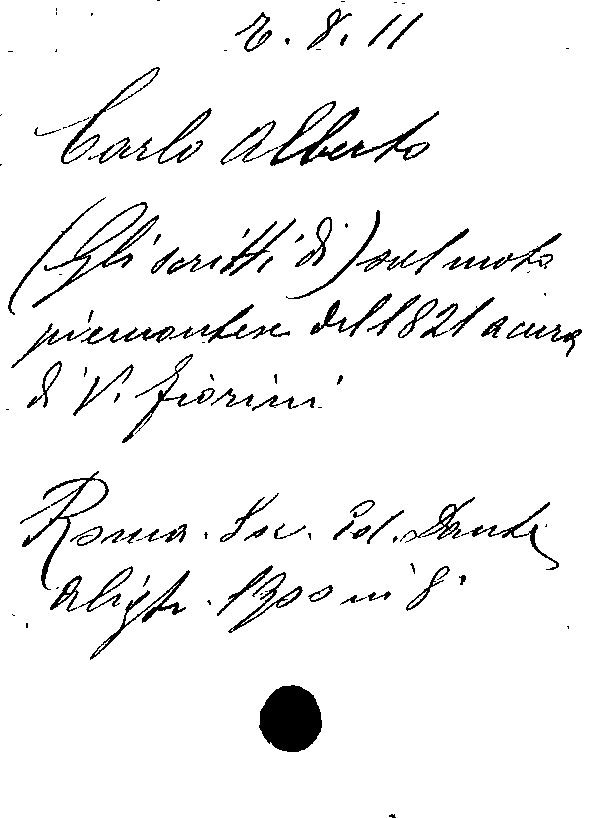 7. 8. 11
Carlo Alberto
(Gli scritti di) sul moto
piemontese del 1821 a cura
di V. Fiorini
Roma. Soc. Ed. Dante
Aligh. 1900 in 8°